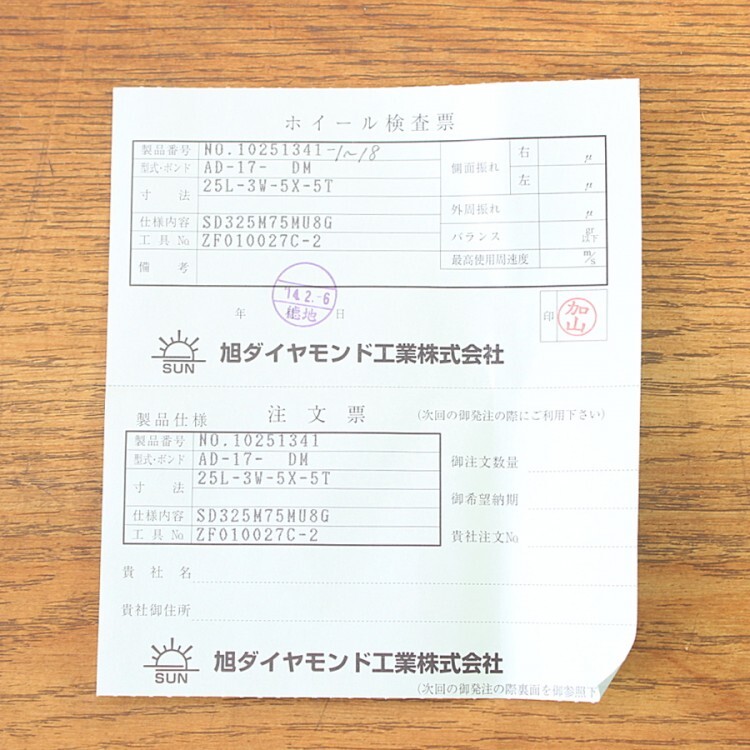 ホイール検査票
製品番号 NO.10251341-1~18
型式・ボンド AD-17- DM
寸法 25L-3W-5X-5T
仕様内容 SD325M75MU8G
工具No ZF010027C-2
備考
側面振れ 右 μ
左 μ
外周振れ μ
バランス gr以下
最高使用周速度 m/s
年 日
'14.2.-6
印 加山
SUN 旭ダイヤモンド工業株式会社
製品仕様 注文票 (次回の御発注の際にご利用下さい)
製品番号 NO.10251341
型式・ボンド AD-17- DM
寸法 25L-3W-5X-5T
仕様内容 SD325M75MU8G
工具No ZF010027C-2
御注文数量
御希望納期
貴社注文No
貴社名
貴社御住所
SUN 旭ダイヤモンド工業株式会社
(次回の御発注の際裏面を御参照下